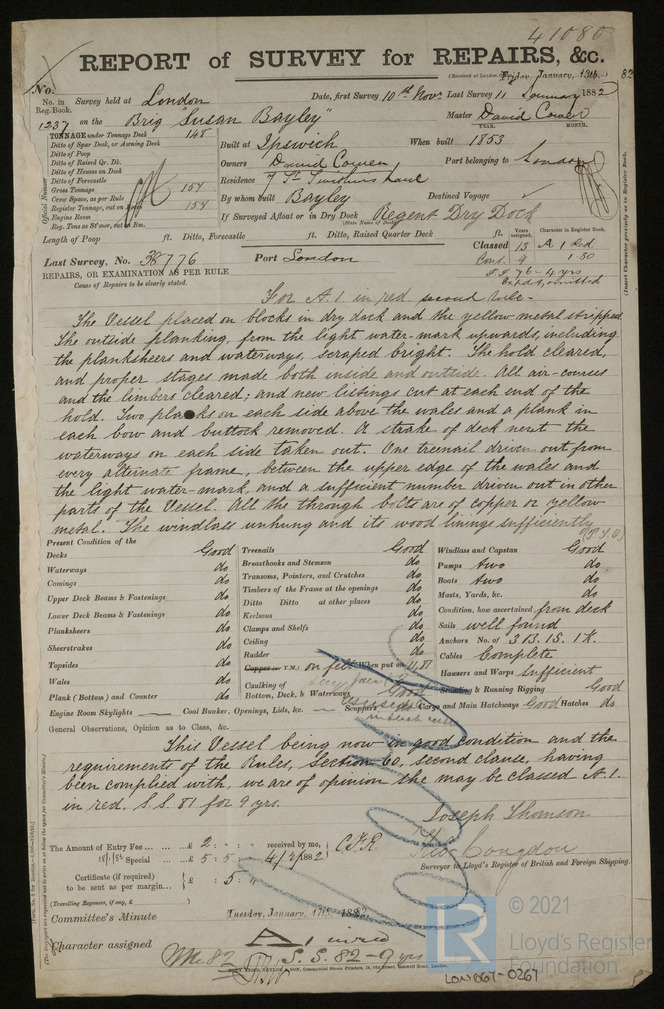 41080
REPORT of SURVEY for REPAIRS, &c.
(Received at London Friday, January, 13th 82
No.
No. in Reg. Book. Survey held at London Date, first Survey 10th Novr Last Survey 11 January 1882
1237 on the Brig "Susan Bayley" Master David Cowen
TONNAGE under Tonnage Deck 148
YEAR. MONTH.
Ditto of Spar Deck, or Awning Deck
Built at Ipswich When built 1853
Ditto of Poop
Ditto of Raised Qr. Dk.
Owners David Cowen Port belonging to London
Ditto of Houses on Deck
Ditto of Forecastle
Residence 7 St Swithins Lane
Gross Tonnage 154
Crew Space, as per Rule
By whom built Bayley Destined Voyage
Register Tonnage, cut on Beam 154
Engine Room
If Surveyed Afloat or in Dry Dock Regent Dry Dock
(State Name of Dock)
Official Number
Length of Poop ft. Ditto, Forecastle ft. Ditto, Raised Quarter Deck ft.
Years assigned. Character in Register Book.
Classed 13 A. 1 Red
Cont. 9 1.80
Last Survey, No. 38776 Port London
S.S. 76 - 4 yrs
REPAIRS, OR EXAMINATION AS PER RULE
Cause of Repairs to be clearly stated.
For A. 1 in red second time -
The Vessel placed on blocks in dry dock and the yellow metal stripped
The outside planking, from the light water-mark upwards, including
the planksheers and waterways, scraped bright. The hold cleared,
and proper stages made both inside and outside. All air-courses
and the limbers cleared; and new listings cut at each end of the
hold. Two planks on each side above the wales and a plank in
each bow and buttock removed. A strake of deck next the
waterways on each side taken out. One treenail driven out from
every alternate frame, between the upper edge of the wales and
the light water-mark, and a sufficient number driven out in other
parts of the Vessel. All the through bolts are of copper or yellow
metal. The windlass unhung and its wood linings sufficiently
(P.T.O)
Present Condition of the
Decks Good
Waterways do
Comings do
Upper Deck Beams & Fastenings do
Lower Deck Beams & Fastenings do
Planksheers do
Sheerstrakes do
Topsides do
Wales do
Plank (Bottom) and Counter do
Treenails Good
Breasthooks and Stemson do
Transoms, Pointers, and Crutches do
Timbers of the Frame at the openings do
Ditto Ditto at other places do
Keelsons do
Clamps and Shelfs do
Ceiling do
Rudder do
Copper (or Y.M.) on felt When put on 11,81
Caulking of
Bottom, Deck, & Waterways Good
Windlass and Capstan Good
Pumps two do
Boats two do
Masts, Yards, &c. do
Condition, how ascertained from deck
Sails well found
Anchors No. of 3 B. 1 S. 1 K.
Cables Complete
Hawsers and Warps Sufficient
Standing & Running Rigging Good
Engine Room Skylights Coal Bunker, Openings, Lids, &c. Scuppers do Cargo and Main Hatchways Good Hatches do
General Observations, Opinion as to Class, &c.
This Vessel being now in good condition and the
requirements of the Rules, Section 60, second clause, having
been complied with, we are of opinion she may be classed A. 1.
in red. S.S. 81 for 9 yrs.
Joseph Thomson
Congdon
Surveyor to Lloyd's Register of British and Foreign Shipping.
The Amount of Entry Fee £ 2 : - : - received by me,
18/1/82 Special £ 5 : 5 : - 4/2/1882
Certificate (if required) to be sent as per margin £ : 5 :
(Travelling Expenses, if any, £ )
Committee's Minute Tuesday, January, 17th, 1882.
Character assigned A, in red
S.S. 82 - 9 yrs
© 2021
LR
Lloyd's Register
Foundation
LON667-0267